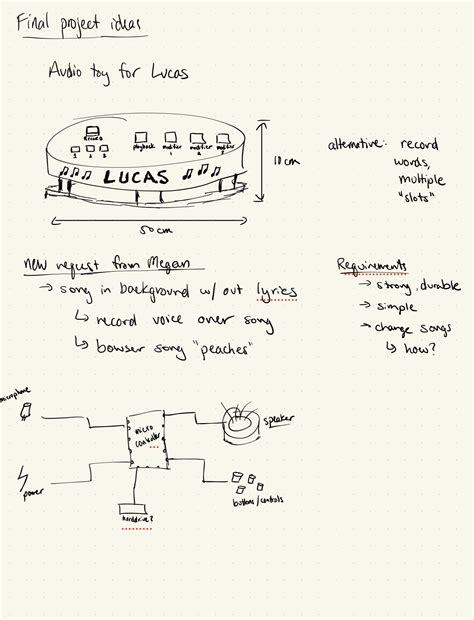 Final project ideas
Audio toy for Lucas
record
1 2 3
playback modifier 1 modifier 2 modifier
LUCAS
10 cm
50 cm
alternative: record
words,
multiple
"slots"
New request from Megan
→ song in background w/ out lyrics
↳ record voice over song
↳ bowser song "peaches"
Requirements
→ strong, durable
→ simple
→ change songs
↳ how?
microphone
micro
controller
speaker
power
buttons/controls
harddrive?